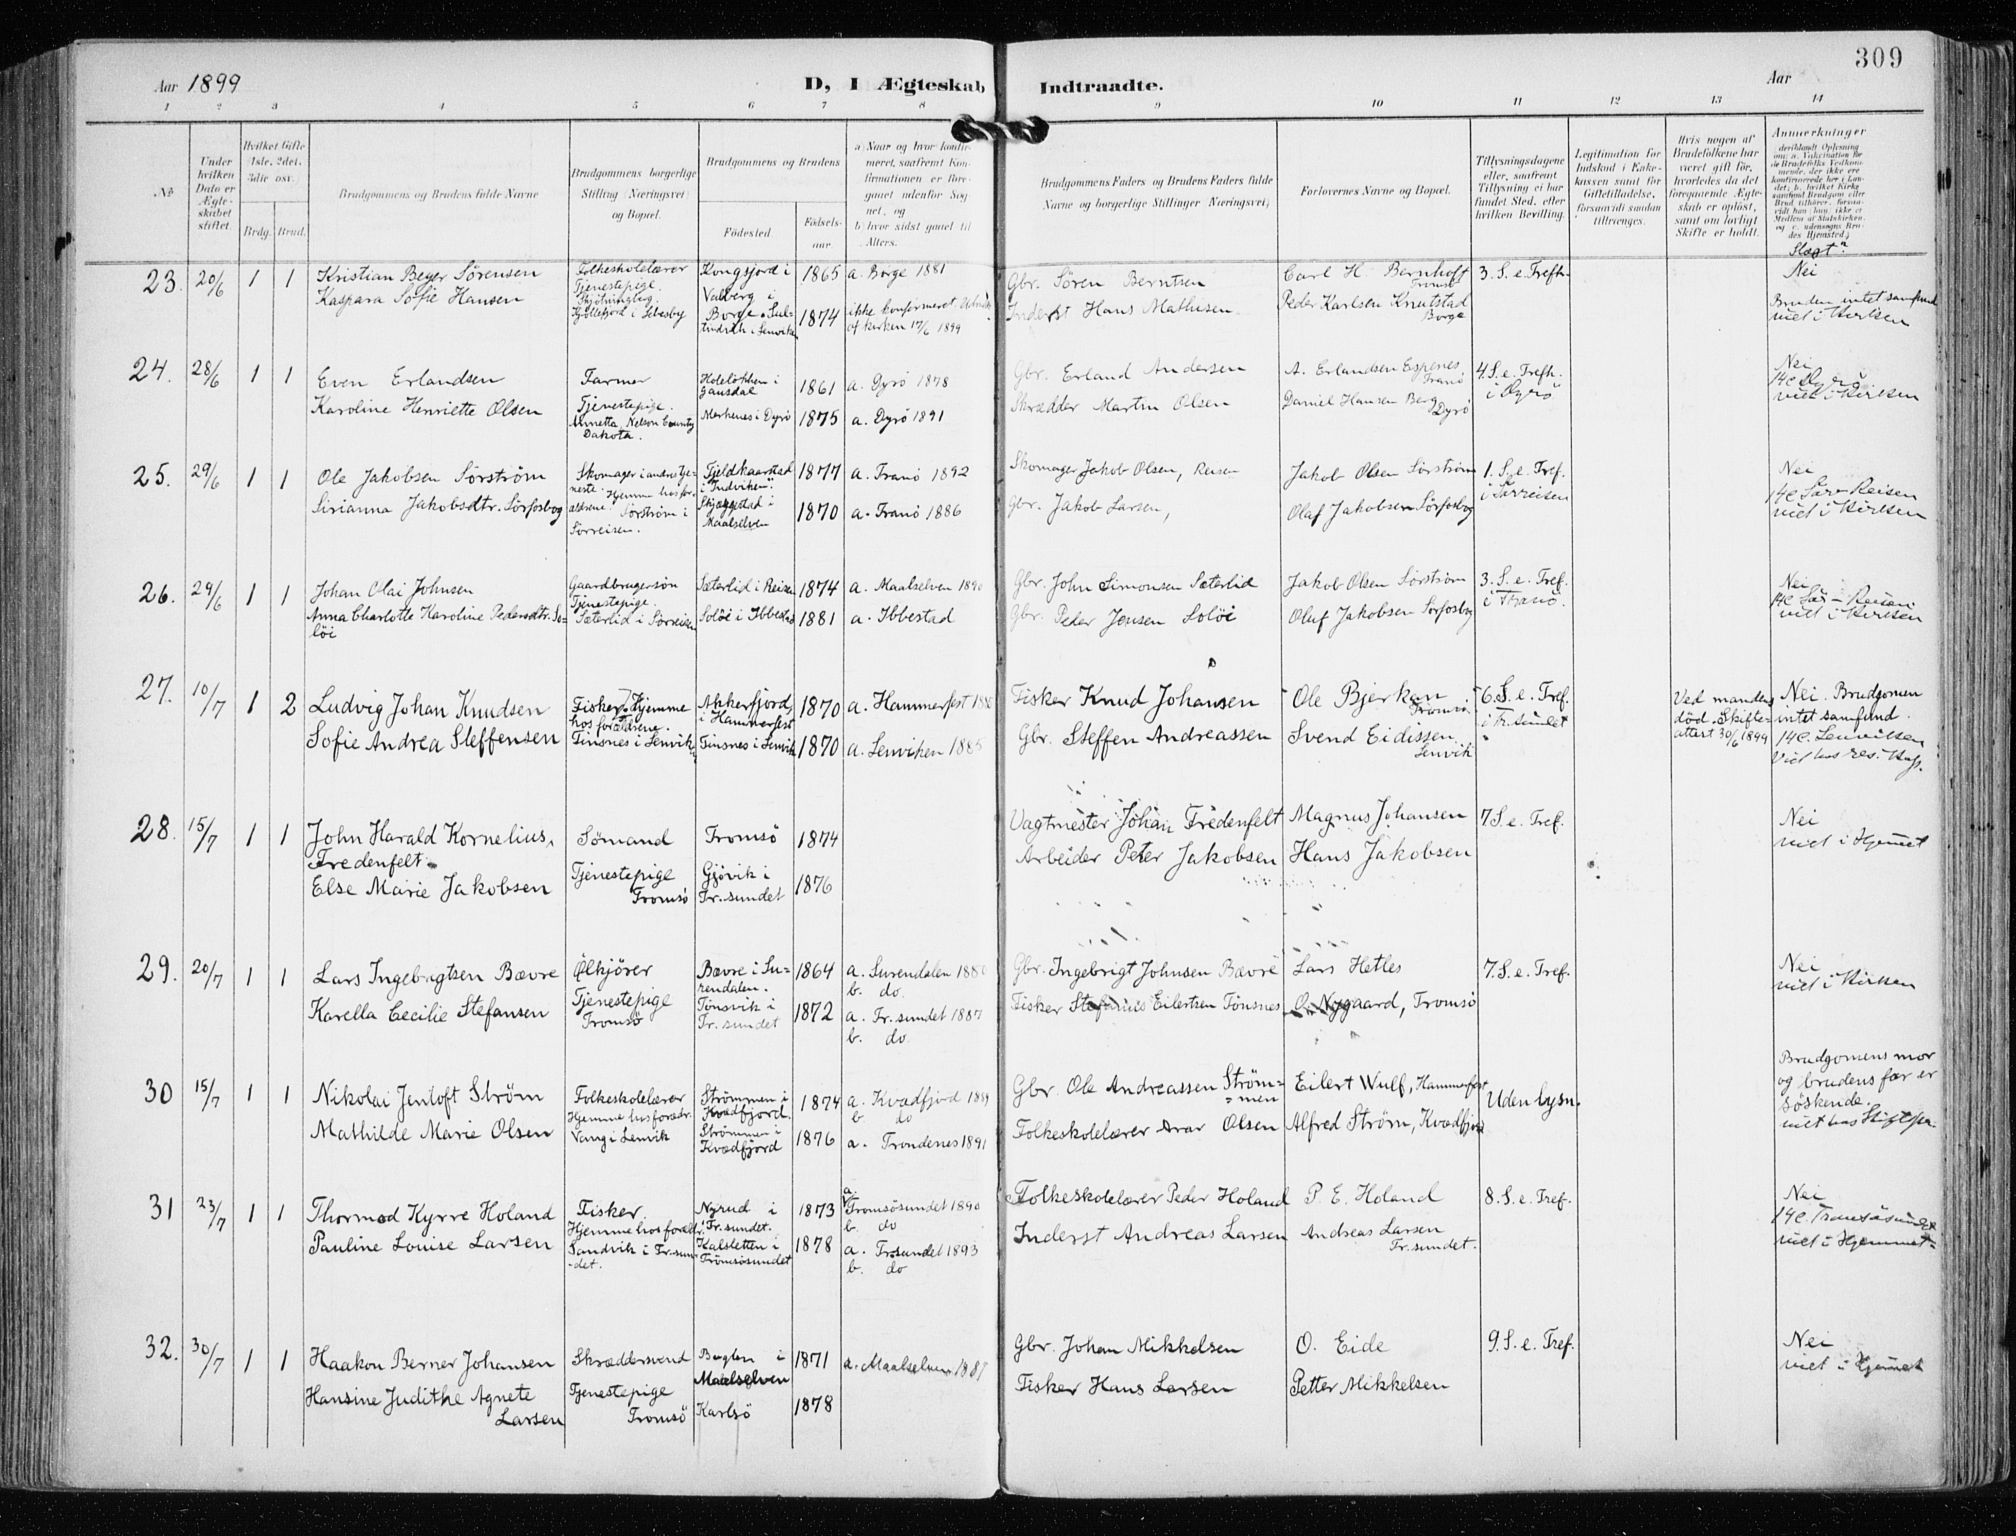 309
Aar 1899
D, I Ægteskab Indtraadte.
Aar
1 2 3 4 5 6 7 8 9 10 11 12 13 14
No.
Under hvilken Dato er Ægteskabet stiftet.
Hvilket Gifte 1ste, 2det, 3die osv.
Brdg. Brud.
Brudgommens og Brudens fulde Navne
Brudgommens borgerlige Stilling (Næringsvei) og Bopæl.
Brudgommens og Brudens
Fødested
Fødselsaar.
a) Naar og hvor konfirmeret, saafremt Konfirmationen er foregaaet udenfor Sognet, og
b) hvor sidst gaaet til Alters.
Brudgommens Faders og Brudens Faders fulde Navne og borgerlige Stillinger (Næringsvei)
Forlovernes Navne og Bopæl.
Tillysningsdagene eller, saafremt Tillysning ei har fundet Sted, efter hvilken Bevilling.
Legitimation for Indskud i Enkekassen samt for Giftetilladelse, forsaavidt saadan tiltrænges.
Hvis nogen af Brudefolkene har været gift før, hvorledes da det foregaaende Ægteskab er opløst, samt om lovligt Skifte er holdt.
Anmerkninger
Slægt?
23. 20/6 1 1
Kristian Beyer Sörensen
Kaspara Sofie Hansen
Folkeskolelærer
Tjenestepige.
Kjøllefjord i Lebesby
Kongsjord i
Valberg i
Borge
1865
1874
a. Borge 1881
ikke konfirmeret
af kirken 17/6 1899
Gbr. Sören Berntsen
Inderst Hans Mathisen
Carl H. Bernhoft
Tromsö
Peder Karlsen Knutstad
Borge
3. S. e. Trefh.
Nei
Bruden intet samfund
viet i Kirken
24. 28/6 1 1
Even Erlandsen
Karoline Henriette Olsen
Farmer
Tjenestepige.
Annetta, Nelson County
Dakota.
Holelökken i
Gausdal
Merkenes i Dyrö
1861
1875
a. Dyrö 1878
a. Dyrö 1891
Gbr. Erland Andersen
Skrædder Martin Olsen
A. Erlandsen Espenes
Tranö
Daniel Hansen Berg
Dyrö
4. S. e. Trefh.
i Dyrö
Nei
14c Dyrö
viet i Kirken
25. 29/6 1 1
Ole Jakobsen Sörström
Sirianna Jakobsdtr. Sörfosbog
Skomager i andres tjeneste. Hjemme hos forældrene. Sörström i
Sörreisen.
Fjeldkaarstad
i Indviken.
Skjæggestad i
Maalselven
1877
1870
a. Tranö 1892
a. Tranö 1886
Skomager Jakob Olsen, Reisen
Gbr. Jakob Larsen,
Jakob Olsen Sörström
Olaf Jakobsen Sörfosbog
1. S. e. Tref.
i Sörreisen
Nei
14c Sör-Reisen
viet i Kirken
26. 29/6 1 1
Johan Olai Johnsen
Anna Charlotte Karoline Pedersdtr. Solöi
Gaardbrugersön
Tjenestepige.
Sæterlid i Sörreisen
Sæterlid i Reisen
Solöi i Ibbestad
1874
1881
a. Maalselven 1890
a. Ibbestad
Gbr. John Simonsen Sæterlid
Gbr. Peder Jensen Solöi
Jakob Olsen Sörström
Oluf Jakobsen Sorfosbog
3. S. e. Tref.
i Tranö.
Nei
14c Sör-Reisen
viet i Kirken
27. 10/7 1 2
Ludvig Johan Knudsen
Sofie Andrea Steffensen
Fisker. Hjemme
hos forældrene.
Finsnes i Lenvik
Akkerfjord,
i Hammerfest
Finsnes i Lenvik
1870
1870
a. Hammerfest
a. Lenviken 1885
Fisker Knud Johansen
Gbr. Steffen Andreassen
Ole Bjerkan
Tromsö
Svend Eidissen
Lenvik
6. S. e. Tref.
i Tr. sundet
Ved mandens
död. Skifteattest 30/6 1899
Nei. Brudgomen
intet samfund.
14c. Lenviken
Viet hos res. Kap.
28. 15/7 1 1
John Harald Kornelius
Fredenfelt
Else Marie Jakobsen
Sømand
Tjenestepige
Tromsö
Tromsö
Gjövik i
Tr. sundet
1874
1876
Vagtmester Johan Fredenfelt
Arbeider Peter Jakobsen
Magnus Johansen
Hans Jakobsen
7. S. e. Tref.
Nei
viet i Hjemmet
29. 20/7 1 1
Lars Ingebrigtsen Bævre
Karella Cecilie Stefansen
Ölkjörer
Tjenestepige
Tromsö
Bævre i Surendalen.
Tönsvik i
Tr. sundet
1864
1872
a. Surendalen 1880
b. do
a. Tr. sundet 1887
b. do
Gbr. Ingebrigt Johnsen Bævre
Fisker Stefanus Eilertsen Tönsnes
Lars Hetles
O. Nygaard, Tromsö
7. S. e. Tref.
Nei
viet i Kirken
30 15/7 1 1
Nikolai Jentoft Ström
Mathilde Marie Olsen
Folkeskolelærer
Hjemme hos forældr.
Vang i Lenvik
Strömmen i
Kvædfjord.
Strömmen i
Kvædfjord
1874
1876
a. Kvædfjord 1889
b. do
a. Trondenes 1891
Gbr. Ole Andreassen Strömmen
Folkeskolelærer Olsen
Eilert Wulf, Hammerfest
Alfred Ström, Kvædfjord
Uden lysn.
Brudgomens mor
og brudens far er
söskende.
viet hos Stiftspr.
31 23/7 1 1
Thormod Kyrre Holand
Pauline Louise Larsen
Fisker.
Hjemme hos forældr.
Sandvik i Tr. sundet.
Nyrud i
Tr. sundet.
Kalsletten i
Tromsösundet
1873
1878
a. Tromsösundet 1890
b. do
a. Tr. sundet 1893
b. do
Folkeskolelærer Peder Holand
Inderst Andreas Larsen
P. E. Holand
Andreas Larsen
Tr. sundet.
8. S. e. Tref.
Nei
14c. Tromsösundet
viet i Hjemmet
32. 30/7 1 1
Haakon Berner Johansen
Hansine Judithe Agnete
Larsen
Skræddersvend
Tjenestepige
Tromsö
i
Maalselven
Karlsö
1871
1878
a. Maalselven 1887
Gbr. Johan Mikkelsen
Fisker Hans Larsen
O. Eide
Petter Mikkelsen
9. S. e. Tref.
Nei
viet i Hjemmet